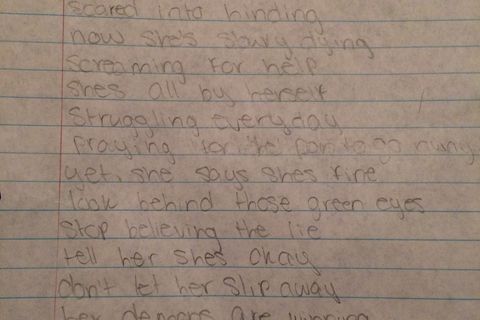 scared into hinding
now she's slowy dying
screaming for help
shes all by herself
struggling everyday
praying for the pain to go
yet, she says shes fine
look behind those green eyes
stop believing the lie
tell her shes okay
don't let her slip away
her demons are